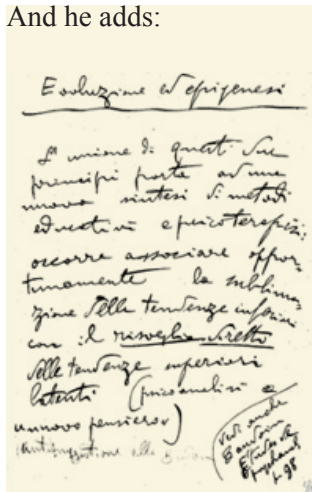 And he adds:
Evoluzione ed epigenesi
L'unione di questi due
principi porta ad una
nuova sintesi di metodi
educativi e psicoterapici:
occorre associare oppor-
tunamente la sublima-
zione delle tendenze inferiori
con il risveglio diretto
delle tendenze superiori
latenti (psicoanalisi e
"nuovo pensiero")
vedi anche
Baudouin
p. 98